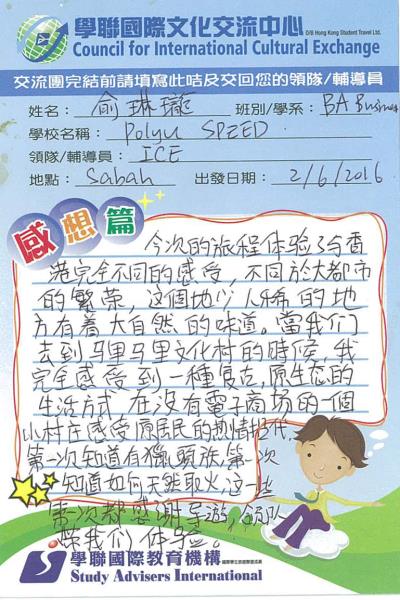 學聯國際文化交流中心 D/B Hong Kong Student Travel Ltd.
Council for International Cultural Exchange
交流團完結前請填寫此咭及交回您的領隊/輔導員
姓名: 俞琳瓏 班別/學系: BA Business
學校名稱: Polyu SPEED
領隊/輔導員: ICE
地點: Sabah 出發日期: 2/6/2016
感想篇
今次的旅程体验了与香
港完全不同的感受,不同於大都市
的繁荣,这個地少人稀的地
方有着大自然的味道。當我们
去到马里马里文化村的時候,我
完全感受到一種复古,原生态的
生活方式 在没有電子商场的一個
小村庄感受原居民的热情招待,
第一次知道有獵頭族,第一次
知道如何天然取火,这一些
第一次都感謝导遊,領队
带我们体验。
學聯國際教育機構
Study Advisers International